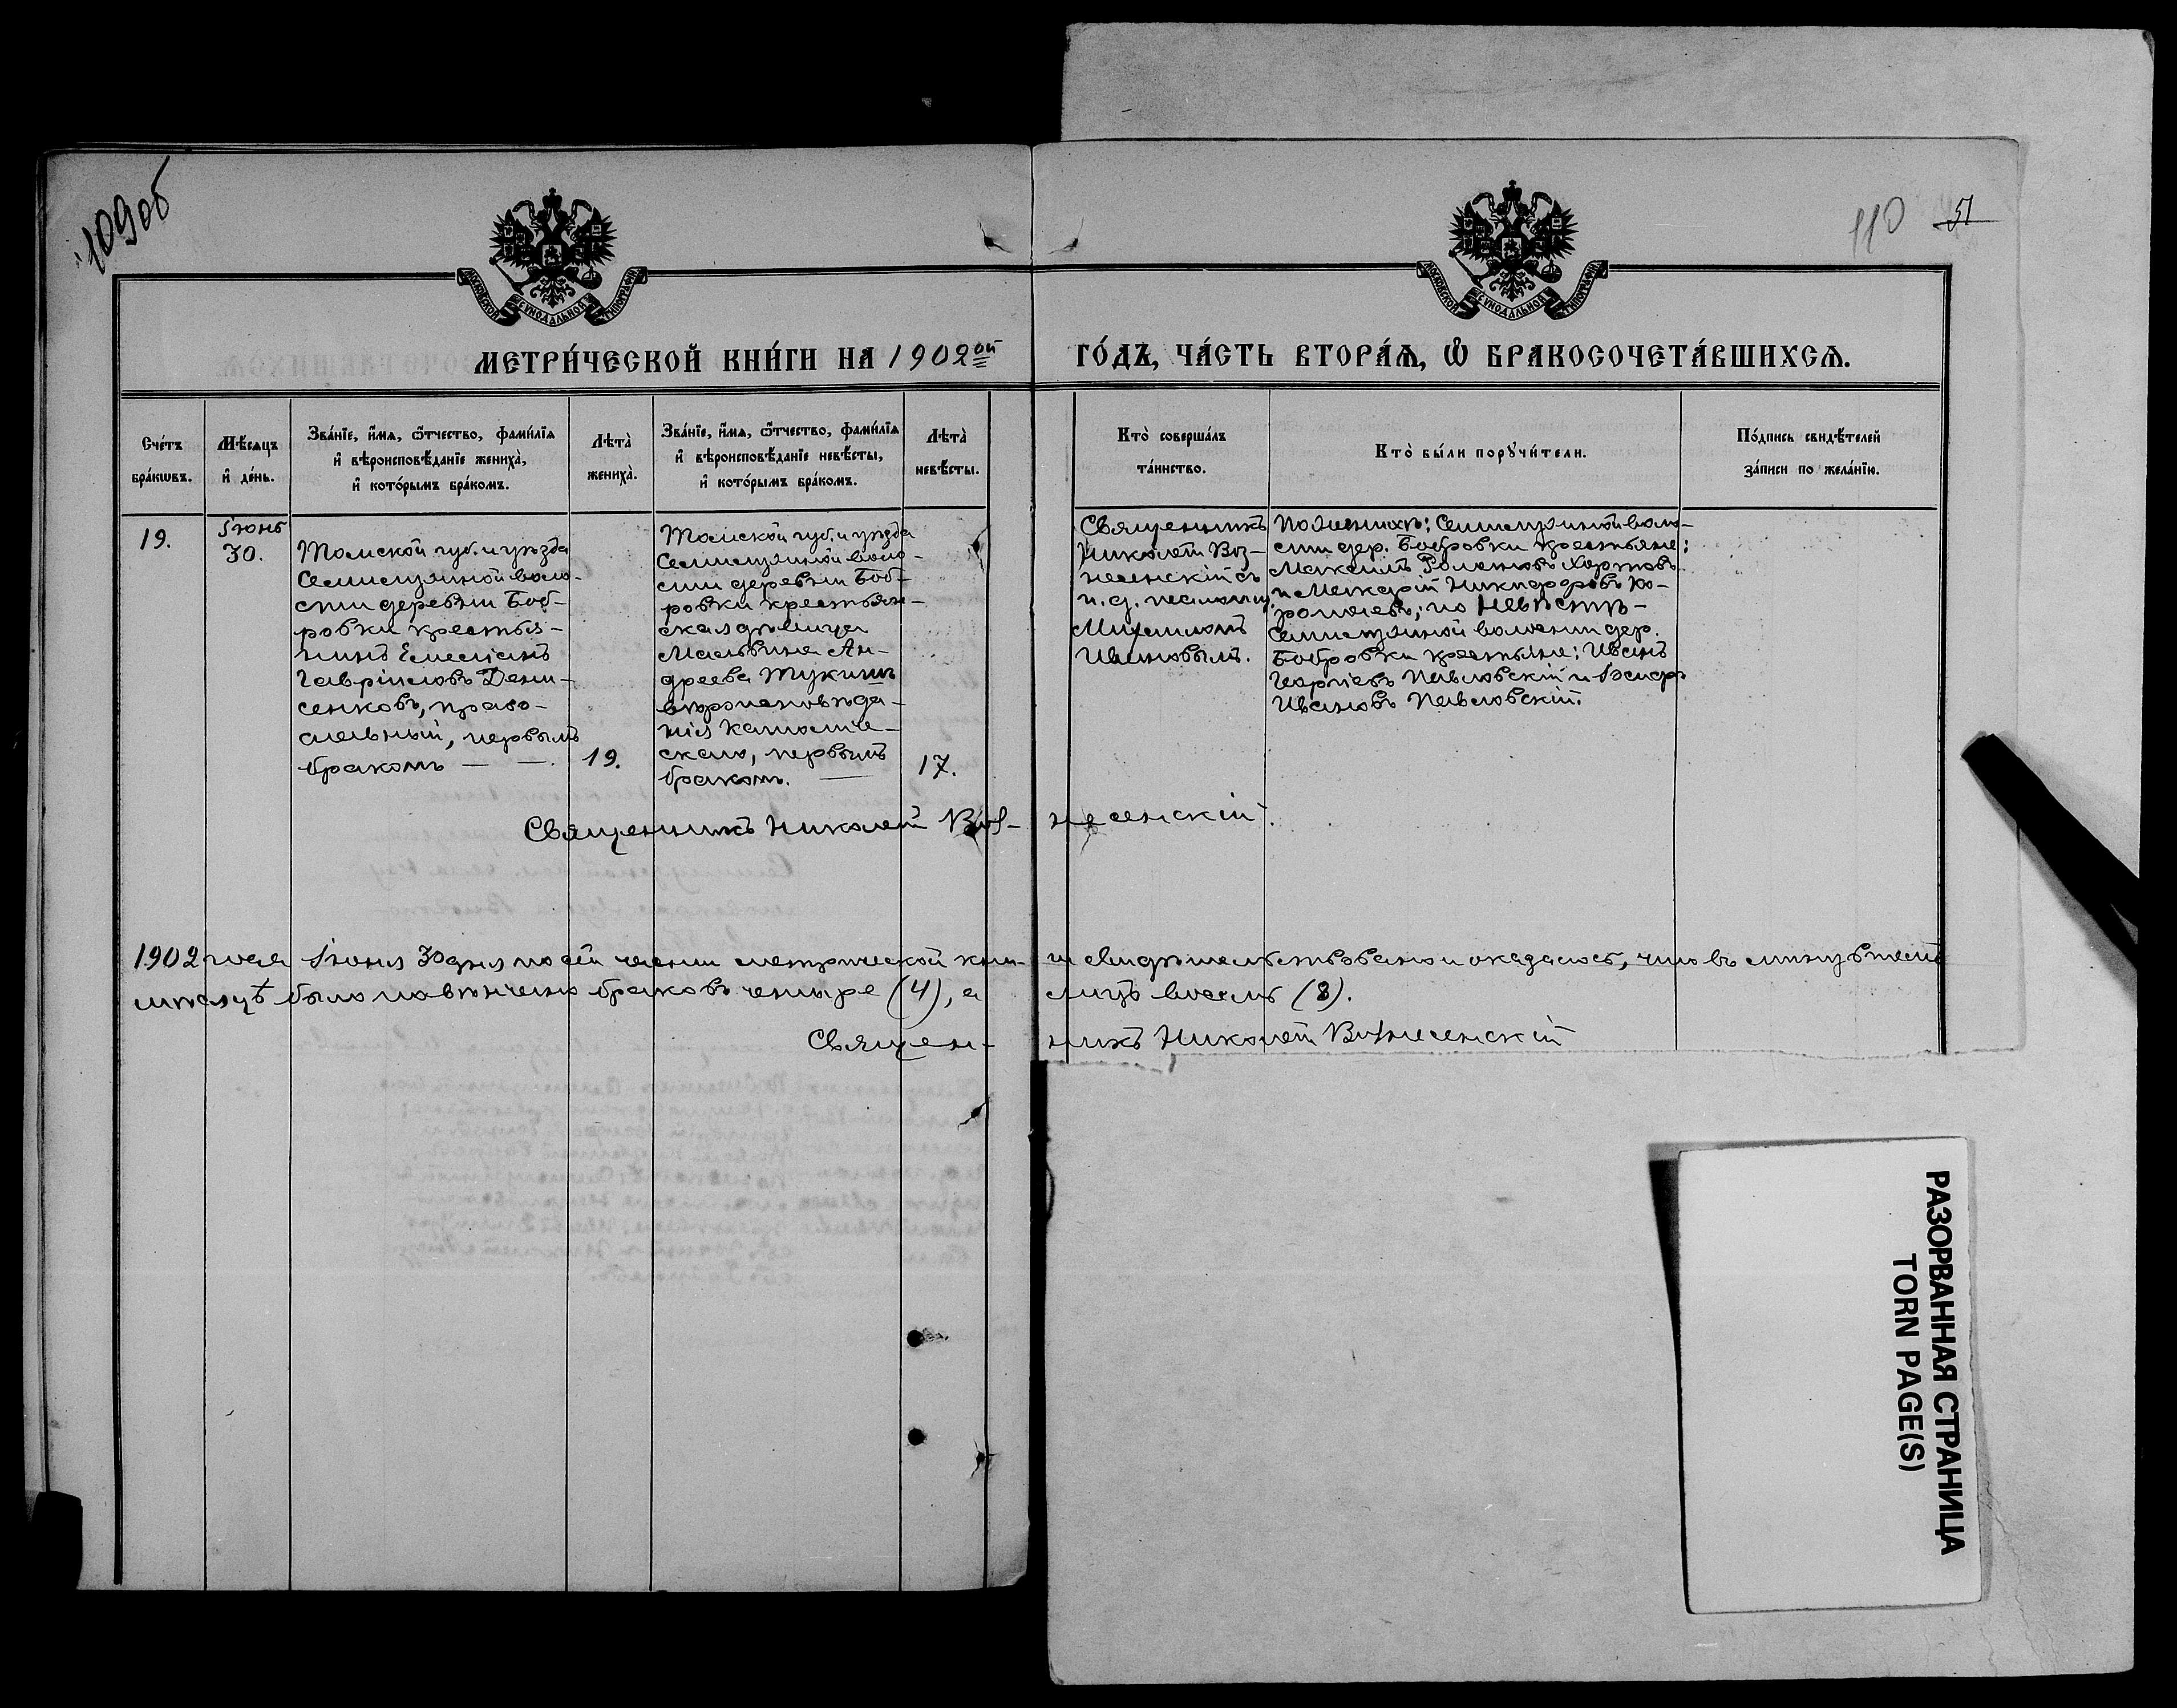 109об
110 51
МОСКОВСКОЙ СУНОДАЛЬНОЙ ТИПОГРАФІИ
МОСКОВСКОЙ СУНОДАЛЬНОЙ ТИПОГРАФІИ
МЕТРИ́ЧЕСКОЙ КНИ́ГИ НА 1902ой ГО́ДЪ, ЧА́СТЬ ВТОРА́Ѧ, Ѽ БРАКОСОЧЕТА́ВШИХСѦ.
Сче́тъ
бра́кѡвъ.
Мѣ́сѧцъ
и҆ де́нь.
Зва́нїе, и҆́мѧ, ѻ҆́тчество, фами́лїѧ
и҆ вѣроисповѣ́данїе жениха̀,
и҆ кото́рымъ бра́комъ.
Лѣта̀
жениха̀.
Зва́нїе, и҆́мѧ, ѻ҆́тчество, фами́лїѧ
и҆ вѣроисповѣ́данїе невѣ́сты,
и҆ кото́рымъ бра́комъ.
Лѣта̀
невѣ́сты.
Кто̀ соверша́лъ
та́инство.
Кто̀ бы́ли порꙋчи́тели.
По́дпись свидѣ́телей
за́писи по жела́нїю.
19.
Іюнь
30.
Томской губ. и уѣзда
Семилужной воло-
сти деревни Боб-
ровки крестья-
нинъ Емеліанъ
Гавріиловъ Дени-
сенковъ, право-
славный, первымъ
бракомъ — —.
19.
Томской губ. и уѣзда
Семилужной воло-
сти деревни Боб-
ровки крестьян-
ская дѣвица
Мальвина Ан-
дреева Тукишъ
вѣроисповѣда-
нія католиче-
скаго, первымъ
бракомъ. —
17.
Священникъ
Николай Воз-
несенскій съ
и. д. псаломщ.
Михаиломъ
Ивановымъ.
По женихѣ: Семилужной воло-
сти дер. Бобровки крестьяне:
Максимъ Романовъ
и Макарій Никифоровъ Хо-
ромаевъ; по невѣстѣ-
Семилужной волости дер.
Бобровки крестьяне: Иванъ
Георгіевъ Павловскій и Іосифъ
Ивановъ Павловскій.
Священникъ Николай Воз-несенскій.
1902 года Іюня 30 дня по сей части метрической кни-ги свидѣтельствовано и оказалось, что въ минувшемъ
мѣсяцѣ было повѣнчано браковъ четыре (4), а лицъ восемь (8).
Священ-никъ Николай Вознесенскій
РАЗОРВАННАЯ СТРАНИЦА
TORN PAGE(S)